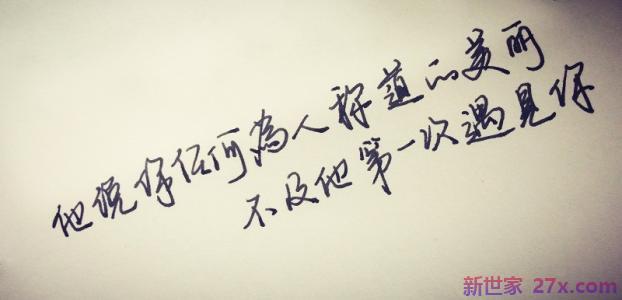 他说你任何為人称道的美丽
不及他第一次遇見你
新世家 27x.com